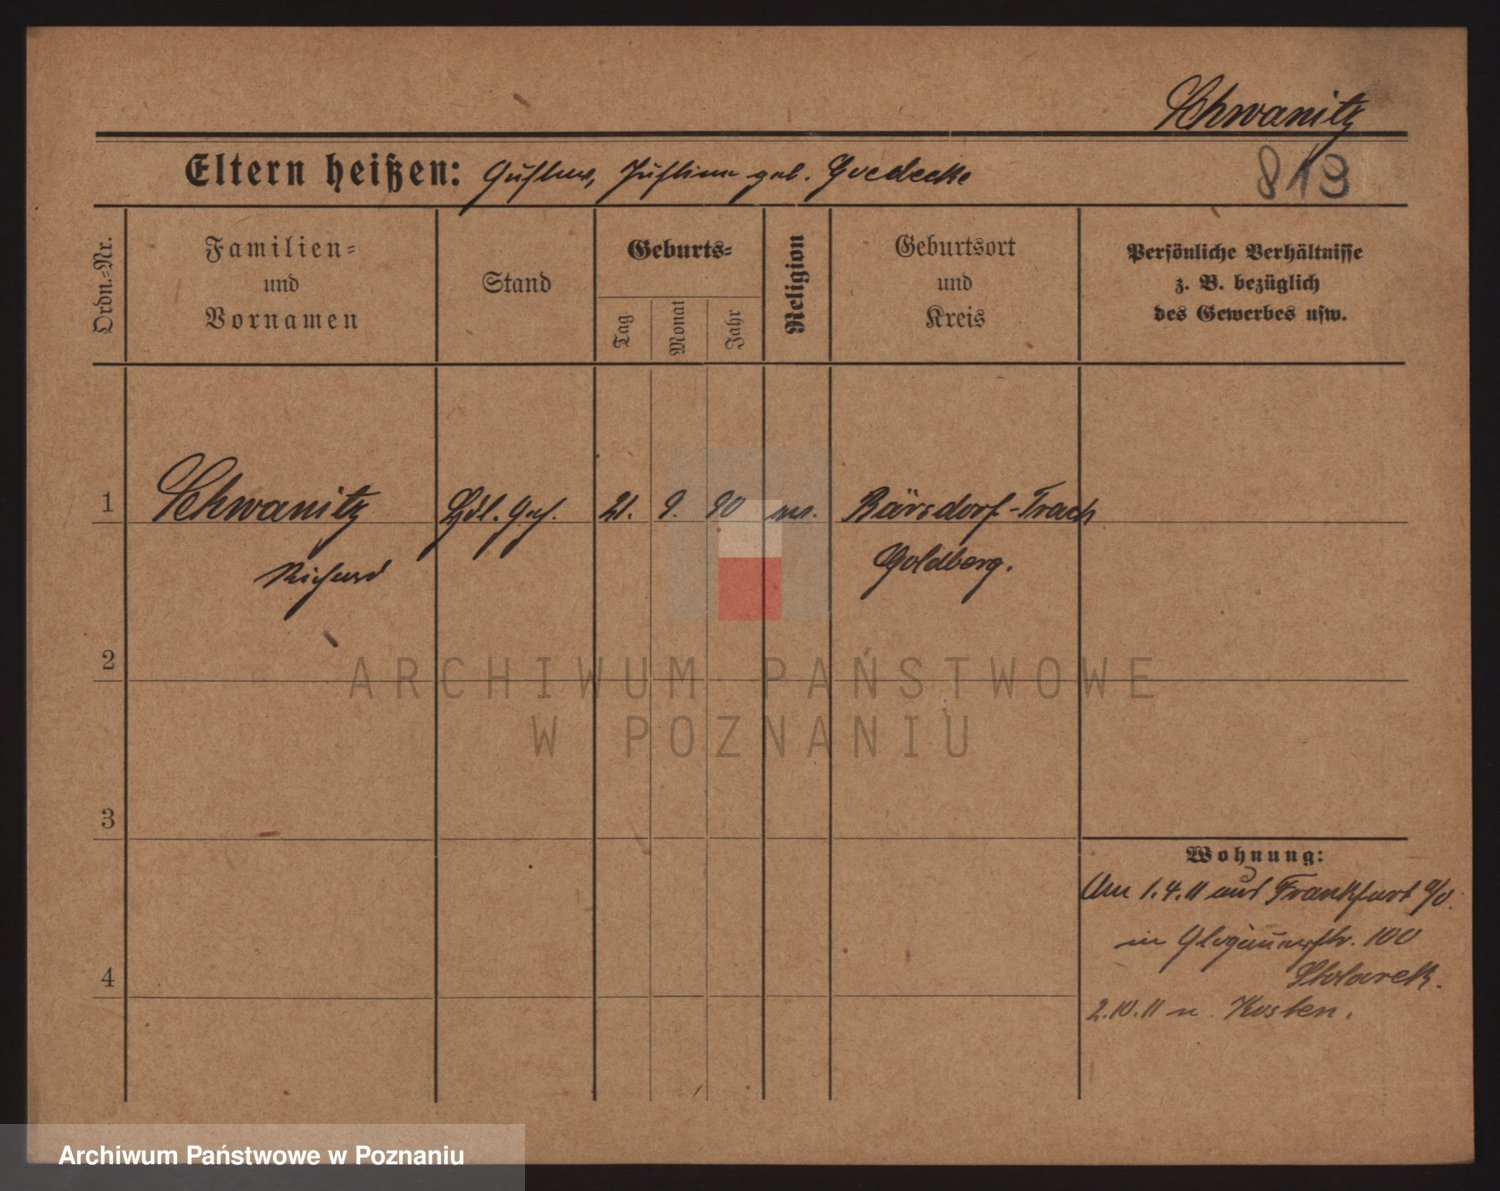 Schwanitz
Eltern heißen: Gustav, Justine geb. Goedecke
813
Ordn.-Nr.
Familien-
und
Vornamen
Stand
Geburts-
Tag
Monat
Jahr
Religion
Geburtsort
und
Kreis
Persönliche Verhältnisse
z. B. bezüglich
des Gewerbes usw.
1
Schwanitz
Hdl. Geh.
21. 9. 90
Bärsdorf-Trach
Richard
Goldberg.
2
ARCHIWUM PAŃSTWOWE
W POZNANIU
3
Wohnung:
Am 1.4.11 aus Frankfurt a/O.
in Glogauerstr. 100
Stolarek.
4
2.10.11 n. Kosten.
Archiwum Państwowe w Poznaniu